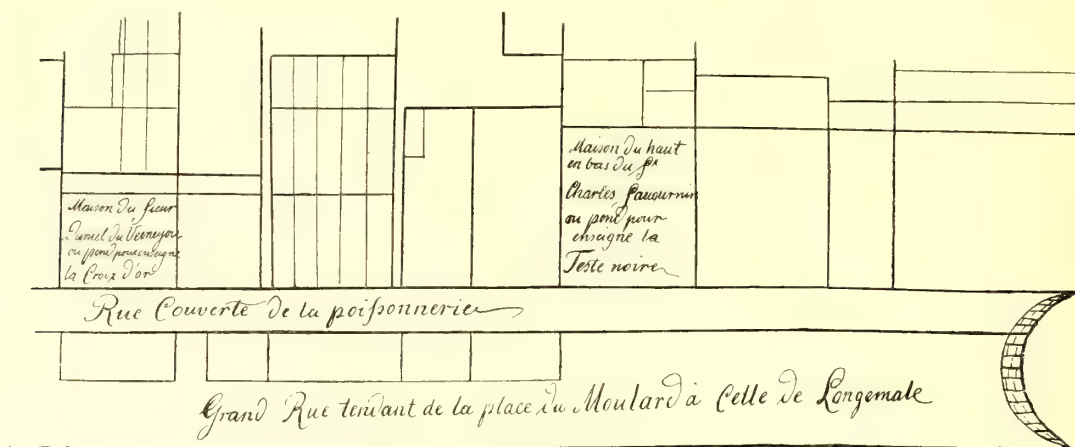 Maison du Sieur
Daniel du Verneyou
ou pend pour enseigne
la Croix d'or
Maison du haut
en bas du Sr
Charles
ou pend pour
enseigne la
Teste noire
Rue Couverte de la poissonnerie
Grand Rue tendant de la place du Moulard à Celle de Longemale